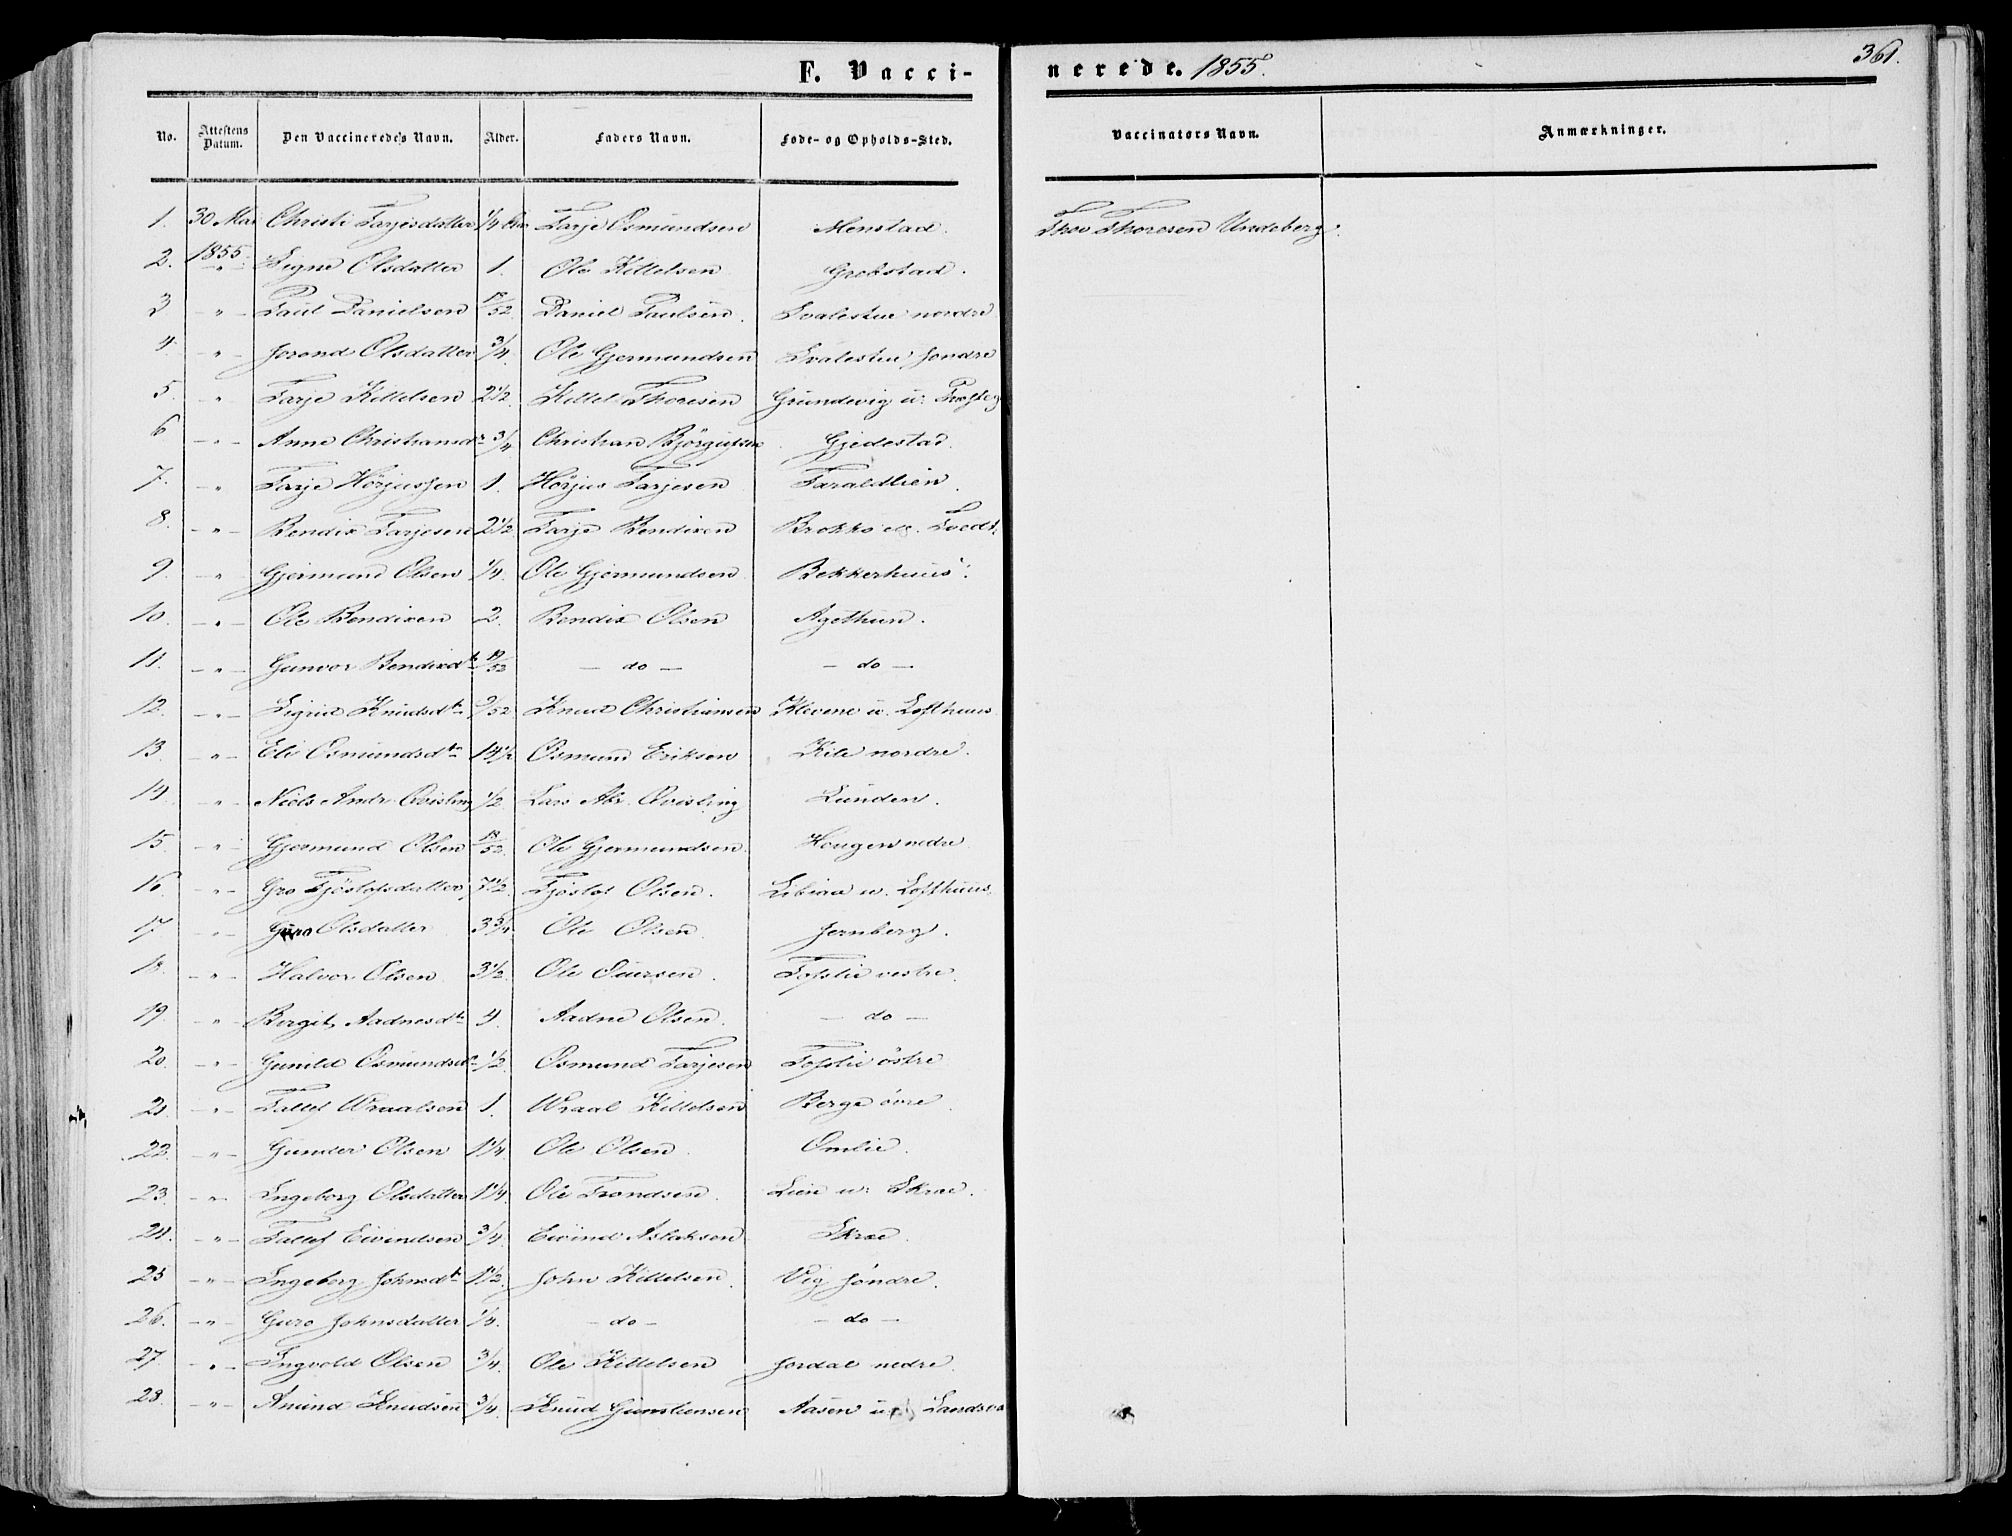 F. Vacci-nerede. 1855.
361.
No. Attestens Datum. Den Vaccineredes Navn. Alder. Faders Navn. Føde- og Opholds-Sted. Vaccinators Navn. Anmærkninger.
1. 30 Mai Christi Tarjesdatter 1/4 Tarje Osmundsen Menstad. Thor Thoresen Undeberg.
2. 1855. Signe Olsdatter 1. Ole Kittelsen Grokstad.
3 -"- Paul Danielsen /52 Daniel Paulsen. Svalestue nordre
4. -"- Jorond Olsdatter 3/4. Ole Gjermundsen Svalestue søndre
5. " Tarje Kittelsen 2 1/2. Kittel Thoresen Grundevig u.
6 -"- Anne Christiansdr 3/4 Christian Bjørgufsen Gjedestad.
7. -"- Tarje Horjussen 1. Horjus Tarjesen Taraldlien.
8. -"- Bendix Tarjesen 2 1/2. Tarje Bendixen Brokke
9. -"- Gjermund Olsen 1/4. Ole Gjermundsen Bekkerhuus.
10. -"- Ole Bendixen 2. Bendix Olsen Agethun.
11. -"- Gunvor Bendixdtr /52 -do- -do-
12. -"- Sigrid Knudsdtr 9/52 Knud Christiansen Klevene u. Lofthuus
13. -"- Eli Osmundsdtr 14 1/2 Osmund Eriksen Kile nordre.
14 " Niels Andr. Qvisling 1/2. Lars Abr. Qvisling Lunden.
15. -"- Gjermund Olsen /52. Ole Gjermundsen. Hougen nedre
16. -"- Gro Tjøstofsdatter 7 1/2. Tjøstof Olsen. u. Lofthuus.
17. -"- Guro Olsdatter 3 3/4. Ole Olsen. Jernberg.
18. -"- Halvor Olsen 3 1/2. Ole Sjursen. Tofslie vestre.
19. -"- Bergit Aadnesdtr 4. Aadne Olsen. -do-
20. -"- Gunild Osmundsdr 1/2. Osmund Tarjesen Tofslie østre
21 -"- Tallef Wraalsen 1. Wraal Kittelsen Berge øvre.
22. -"- Gunder Olsen 1 1/4. Ole Olsen. Omlie.
23. -"- Ingeborg Olsdatter 1 1/4. Ole Trondsen. Lien u. Skrae.
24. -"- Tallef Eivindsen 3/4. Eivind Aslaksen Skrae.
25 -"- Ingeborg Johnsdtr 1 1/2. John Kittelsen. Vig søndre.
26. -"- Guro Johnsdatter 1/4. -do- -do-
27. -"- Ingvold Olsen 3/4. Ole Kittelsen Jordal nedre.
28. -"- Anund Knudsen 3/4. Knud Gunstensen Aasen u.